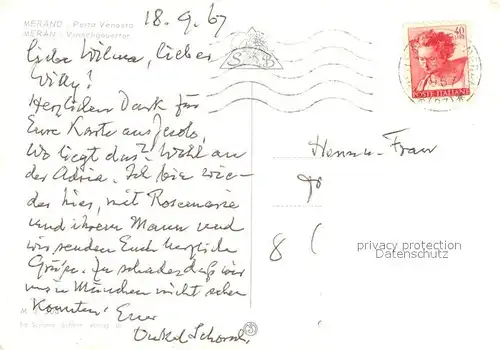 MERANO - Porta Venosta
MERAN - Vinschgauertor
18. 9. 67
Liebe Wilma, lieber
Willy!
Herzlichen Dank für
Eure Karte aus Jesolo,
Wo liegt das? Wohl an
der Adria. Ich bin wie-
der hier, mit Rosemarie
und ihrem Mann und
wir senden Euch herzliche
Grüße. Zu schade, daß wir
uns in München nicht sehen
konnten. Euer
Onkel Schorsch
40
POSTE ITALIANE
Herrn u. Frau
8
privacy protection
Datenschutz